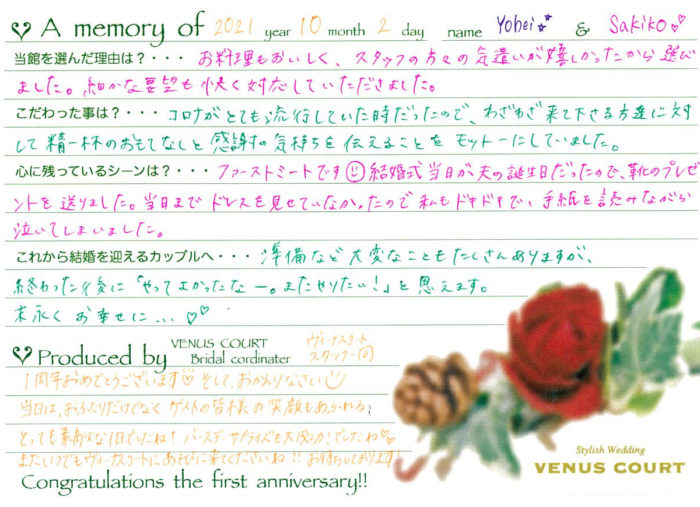 A memory of 2021 year 10 month 2 day name Yohei & Sakiko
当館を選んだ理由は？・・・ お料理もおいしく、スタッフの方々の気遣いが嬉しかったから選び
ました。細かな要望も快く対応していただきました。
こだわった事は？・・・ コロナがとても流行していた時だったので、わざわざ来て下さる方達に対
して精一杯のおもてなしと感謝の気持ちを伝えることをモットーにしていました。
心に残っているシーンは？・・・ ファーストミートです 結婚式当日が夫の誕生日だったので、靴のプレゼ
ントを送りました。当日までドレスを見せていなかったので私もドキドキで、手紙を読みながら
泣いてしまいました。
これから結婚を迎えるカップルへ・・・ 準備など大変なこともたくさんありますが、
終わった後に「やってよかったなー。またやりたい！」と思えます。
末永くお幸せに...♡♡
Produced by VENUS COURT Bridal cordinater ヴィーナスコート スタッフ一同
1周年おめでとうございます♡ そして、おかえりなさい
当日は、おふたりだけでなくゲストの皆様の笑顔もあふれる、
とっても素敵な1日でしたね！バースデーサプライズも大成功！でしたね♡
またいつでもヴィーナスコートにあそびに来てくださいね！！お待ちしております！
Congratulations the first anniversary!!
Stylish Wedding
VENUS COURT